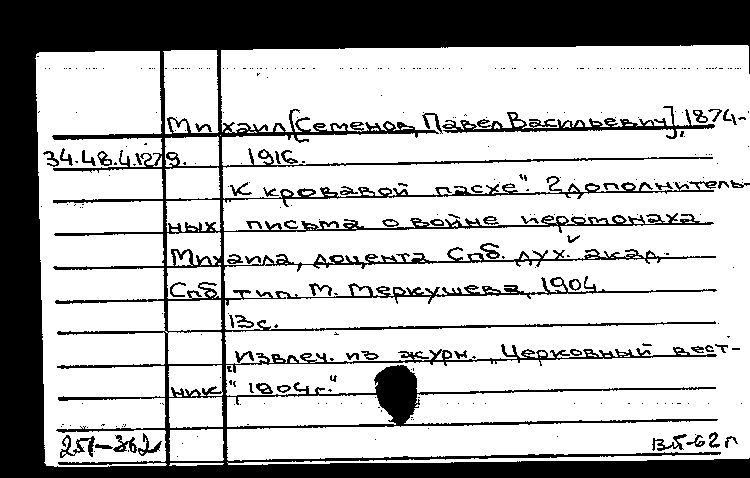 Михаил, [Семенов, Павел Васильевич], 1874-
34.48.4.1279. 1916.
К кровавой пасхе". 2 дополнитель-
ных письма о войне иеромонаха
Михаила, доцента Спб. дух. акад.
Спб, тип. М. Меркушева, 1904.
13с.
Извлеч. из журн. „Церковный вест-
ник", 1904г."
251-362 В.Б-62г